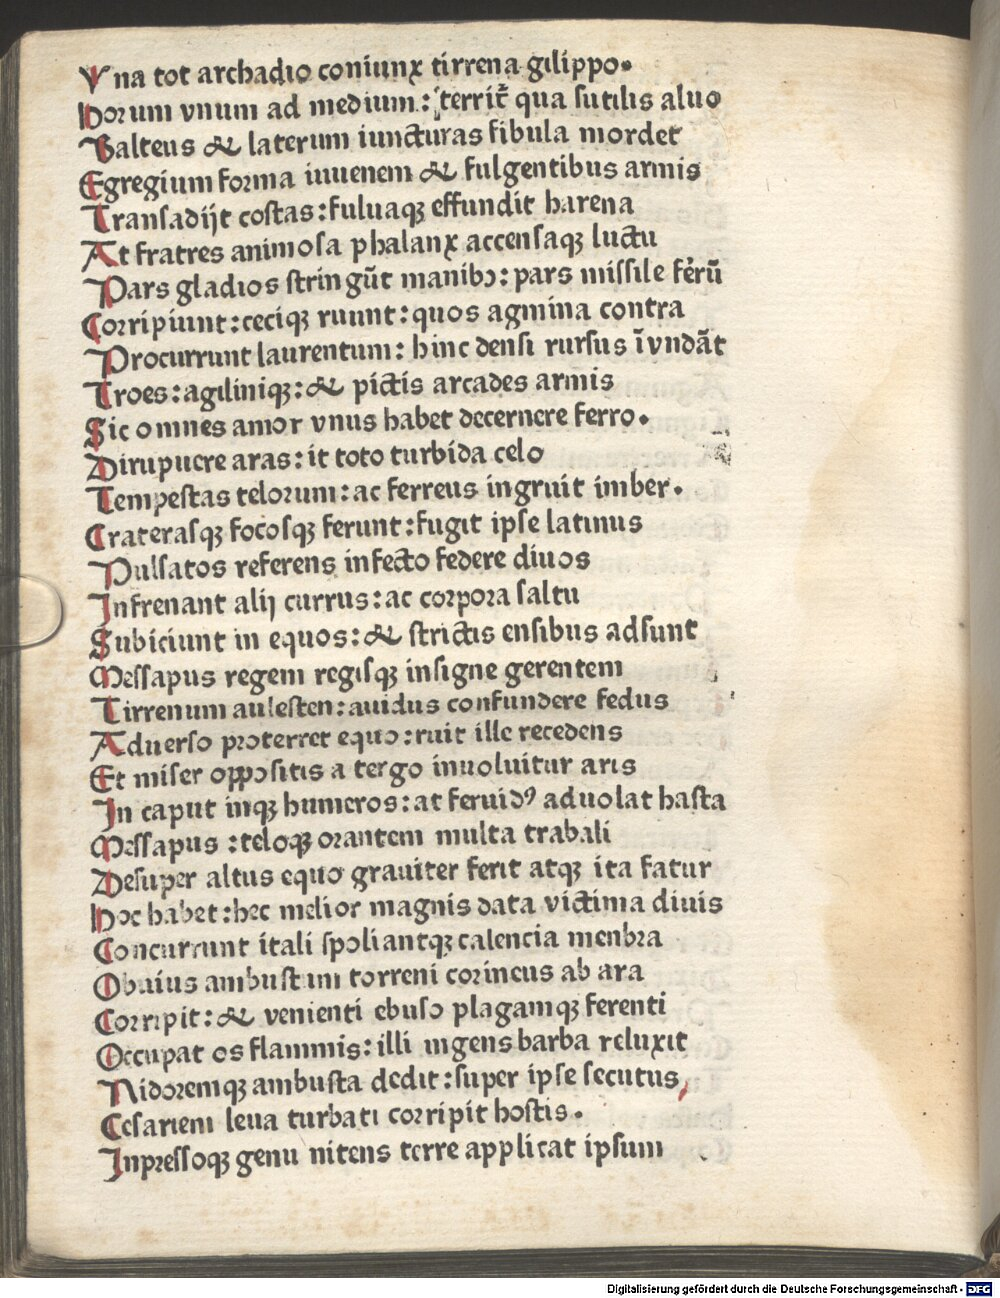 Vna tot archadio coniunx tirrena gilippo.
Horum vnum ad medium: territ̄ qua sutilis aluo
Balteus & laterum iuncturas fibula mordet
Egregium forma iuuenem & fulgentibus armis
Transadijt costas: fuluaqꝫ effundit harena
At fratres animosa phalanx accensaqꝫ luctu
Pars gladios stringūt manibꝯ: pars missile fer̄ū
Corripiunt: ceciqꝫ ruunt: quos agmina contra
Procurrunt laurentum: hinc densi rursus īvndāt
Troes: agiliniqꝫ: & pictis arcades armis
Sic omnes amor vnus habet decernere ferro.
Dirupuere aras: it toto turbida celo
Tempestas telorum: ac ferreus ingruit imber.
Craterasqꝫ focosqꝫ ferunt: fugit ipse latinus
Pulsatos referens infecto federe diuos
Infrenant alij currus: ac corpora saltu
Subiciunt in equos: & strictis ensibus adsunt
Messapus regem regisqꝫ insigne gerentem
Tirrenum aulesten: auidus confundere fedus
Aduerso proterret equo: ruit ille recedens
Et miser oppositis a tergo inuoluitur aris
In caput inqꝫ humeros: at feruidꝰ aduolat hasta
Messapus : teloqꝫ orantem multa trabali
Desuper altus equo grauiter ferit atqꝫ ita fatur
Hoc habet: hec melior magnis data victima diuis
Concurrunt itali spoliantqꝫ calencia menbra
Obuius ambustum torreni corineus ab ara
Corripit: & venienti ebuso plagamqꝫ ferenti
Occupat os flammis: illi ingens barba reluxit
Nidoremqꝫ ambusta dedit: super ipse secutus,
Cesariem leua turbati corripit hostis.
Inpressoqꝫ genu nitens terre applicat ipsum
Digitalisierung gefördert durch die Deutsche Forschungsgemeinschaft - DFG